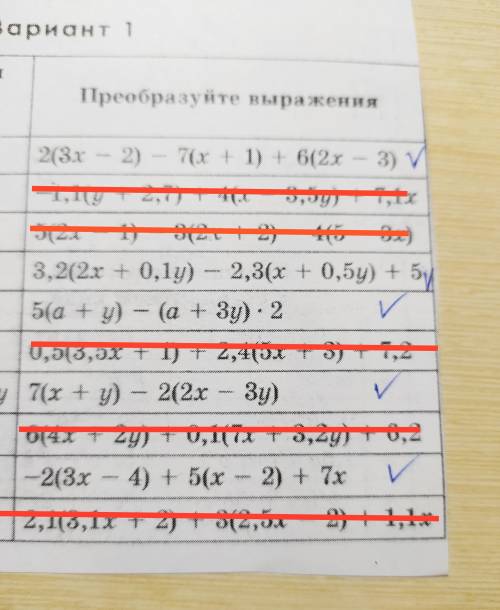 Вариант 1
Преобразуйте выражения
2(3x − 2) − 7(x + 1) + 6(2x − 3)
−1,1(y + 2,7) + 4(x − 3,5y) + 7,1x
5(2x − 1) − 3(2x + 2) − 4(5 − 3x)
3,2(2x + 0,1y) − 2,3(x + 0,5y) + 5
5(a + y) − (a + 3y) · 2
0,5(3,5x + 1) + 2,4(5x + 3) + 7,2
y 7(x + y) − 2(2x − 3y)
6(4x + 2y) + 0,1(7x + 3,2y) + 6,2
−2(3x − 4) + 5(x − 2) + 7x
2,1(3,1x + 2) + 3(2,5x − 2) + 1,1x